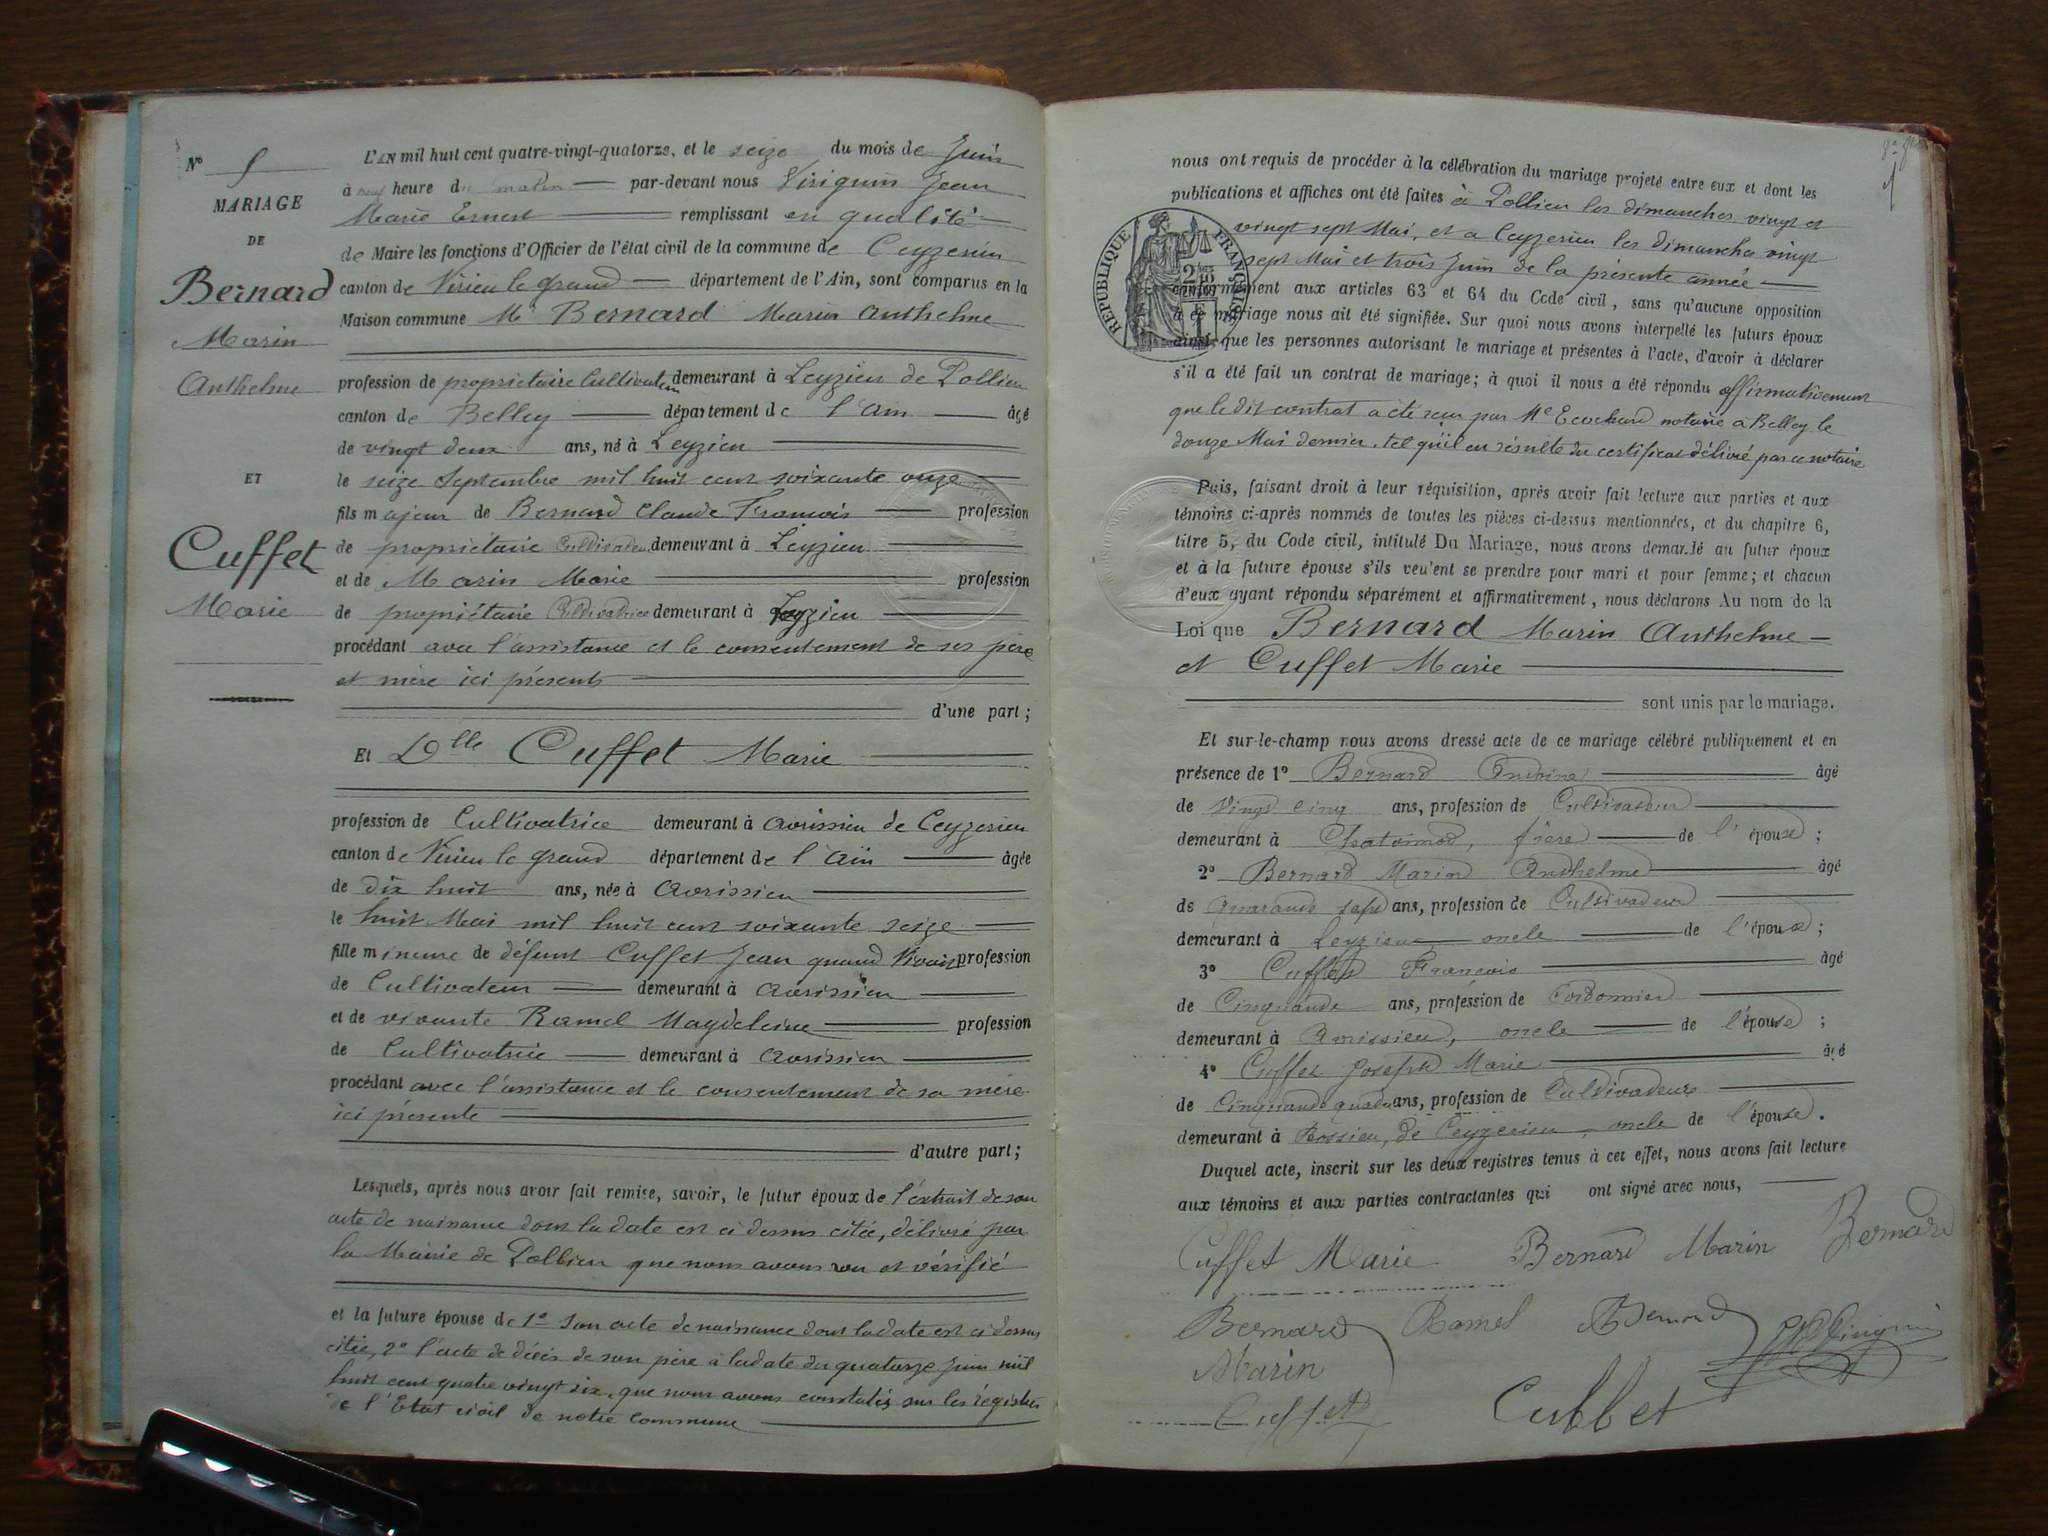 N° 5
MARIAGE
DE
Bernard
Marin
Anthelme
ET
Cuffet
Marie
L'AN mil huit cent quatre-vingt-quatorze, et le seize du mois de Juin
à heure du matin par-devant nous Viriguin Jean
Marie Ernest remplissant en qualité
de Maire les fonctions d'Officier de l'état civil de la commune de Ceyzerieu
canton de Virieu le grand département de l'Ain, sont comparus en la
Maison commune Mr Bernard Marin Anthelme
profession de propriétaire Cultivateur demeurant à Leyzieu de Pollieu
canton de Belley département de l'Ain âgé
de vingt deux ans, né à Leyzieu
le seize Septembre mil huit cent soixante onze
fils majeur de Bernard Claude François profession
de propriétaire Cultivateur demeurant à Leyzieu
et de Marin Marie profession
de propriétaire Cultivatrice demeurant à Leyzieu
procédant avec l'assistance et le consentement de ses père
et mère ici présents
d'une part;
Et Dlle Cuffet Marie
profession de Cultivatrice demeurant à Avrissieu de Ceyzerieu
canton de Virieu le grand département de l'Ain âgée
de dix huit ans, née à Avrissieu
le huit Mai mil huit cent soixante seize
fille mineure de défunt Cuffet Jean quand vivait profession
de Cultivateur demeurant à Avrissieu
et de vivante Ramel Magdeleine profession
de Cultivatrice demeurant à Avrissieu
procédant avec l'assistance et le consentement de sa mère
ici présente
d'autre part;
Lesquels, après nous avoir fait remise, savoir, le futur époux de l'extrait de son
acte de naissance dont la date est ci dessus citée, délivré par
la Mairie de Pollieu que nous avons vu et vérifié
et la future épouse de 1° Son acte de naissance dont la date est ci dessus
citée, 2° l'acte de décès de son père à la date du quatorze Juin mil
huit cent quatre vingt six, que nous avons constatés sur les registres
de l'Etat civil de notre commune
nous ont requis de procéder à la célébration du mariage projeté entre eux et dont les
publications et affiches ont été faites à Pollieu les dimanches vingt et
vingt sept Mai, et a Ceyzerieu les dimanches vingt
sept Mai et trois Juin de la présente année
RÉPUBLIQUE FRANÇAISE
conformément aux articles 63 et 64 du Code civil, sans qu'aucune opposition
à ce mariage nous ait été signifiée. Sur quoi nous avons interpellé les futurs époux
ainsi que les personnes autorisant le mariage et présentes à l'acte, d'avoir à déclarer
s'il a été fait un contrat de mariage; à quoi il nous a été répondu affirmativement
que le dit contrat a été reçu par Me Ecochard notaire à Belley le
douze Mai dernier, tel qu'il en résulte du certificat délivré par ce notaire
Puis, faisant droit à leur réquisition, après avoir fait lecture aux parties et aux
témoins ci-après nommés de toutes les pièces ci-dessus mentionnées, et du chapitre 6,
titre 5, du Code civil, intitulé Du Mariage, nous avons demandé au futur époux
et à la future épouse s'ils veulent se prendre pour mari et pour femme; et chacun
d'eux ayant répondu séparément et affirmativement, nous déclarons Au nom de la
Loi que Bernard Marin Anthelme
et Cuffet Marie
sont unis par le mariage.
Et sur-le-champ nous avons dressé acte de ce mariage célébré publiquement et en
présence de 1° Bernard Antoine âgé
de Vingt cinq ans, profession de Cultivateur
demeurant à Chatonod, frère de l'épouse;
2° Bernard Marin Anthelme âgé
de Quarante sept ans, profession de Cultivateur
demeurant à Leyzieu oncle de l'épouse;
3° Cuffet François âgé
de Cinquante ans, profession de Cordonnier
demeurant à Avrissieu, oncle de l'épouse;
4° Cuffet Joseph Marie âgé
de Cinquante quatre ans, profession de Cultivateur
demeurant à Rossieu, de Ceyzerieu, oncle de l'épouse.
Duquel acte, inscrit sur les deux registres tenus à cet effet, nous avons fait lecture
aux témoins et aux parties contractantes qui ont signé avec nous,
Cuffet Marie Bernard Marin Bernard
Bernard Ramel Bernard
Marin
Cuffet Cuffet